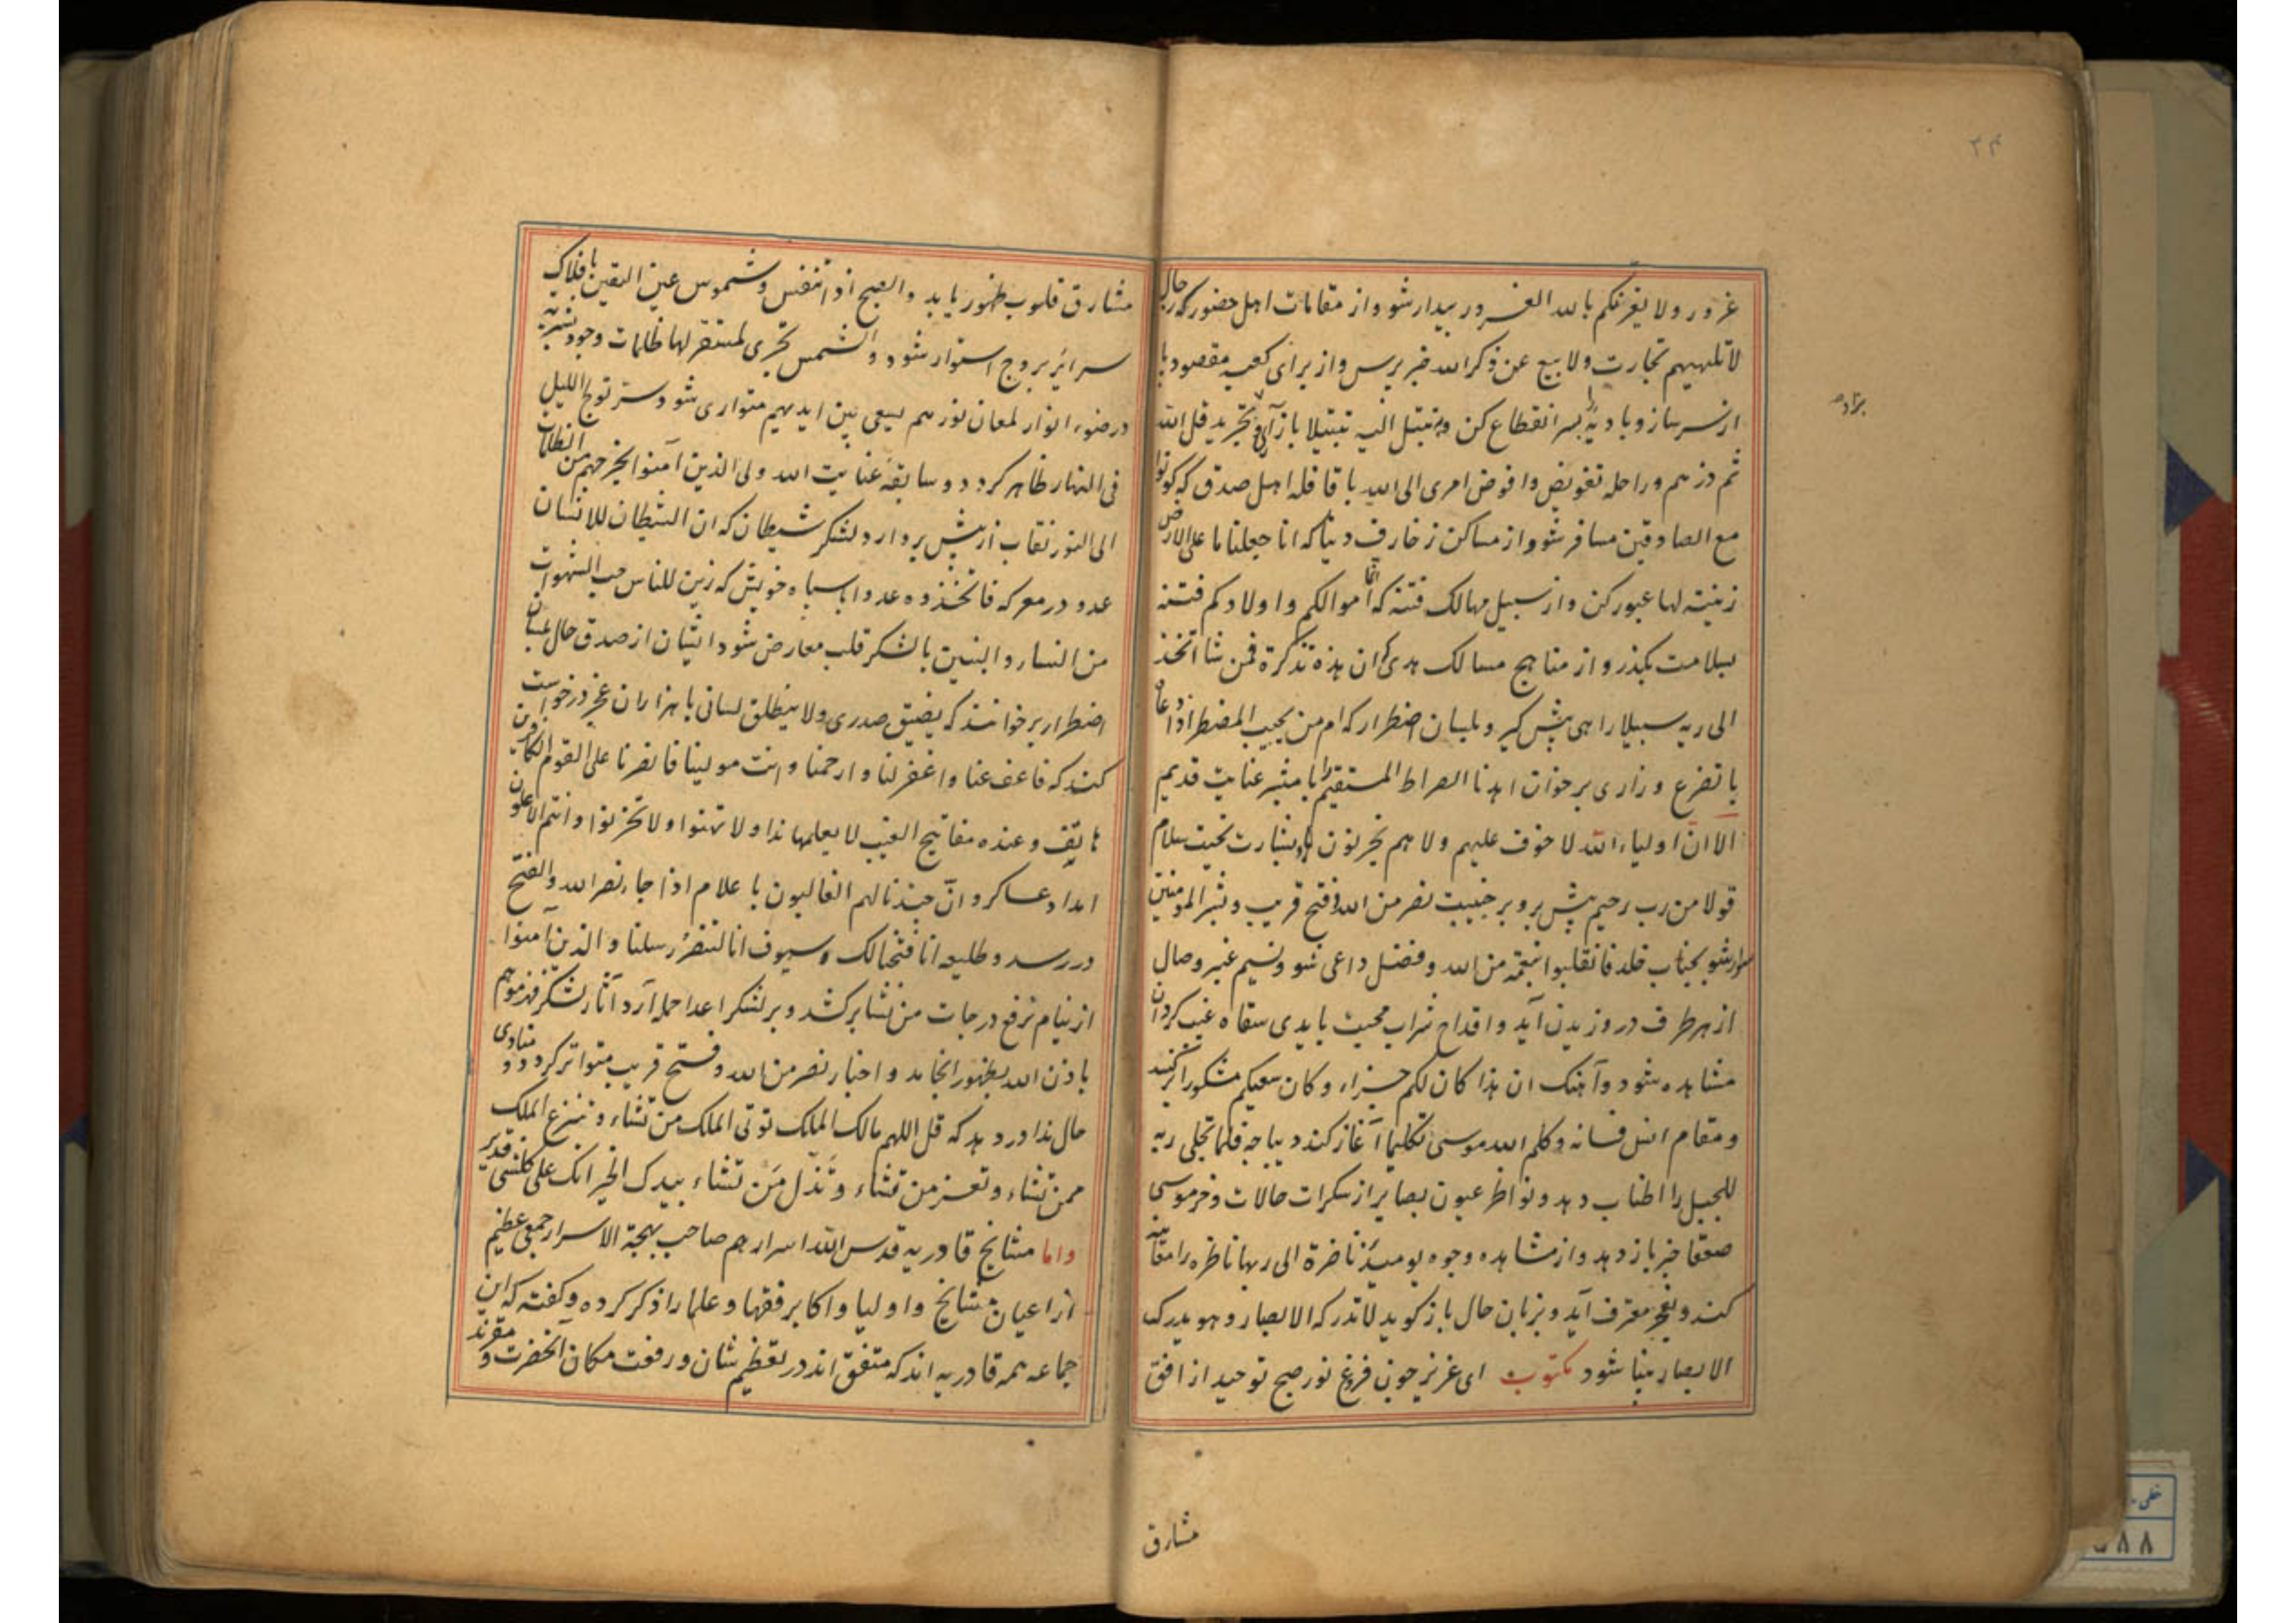 ۳۴
غرور ولا یغرنکم بالله الغرور بیدار شو و از مقامات اهل حضور که رجال
لا تلهیهم تجارت ولا بیع عن ذکر الله خبر بپرس و از برای کعبه مقصود پا
از سر ساز و بادیه بسر انقطاع کن و تبتل الیه تبتیلا باز آی و تجرید قل الله
برآدم
ثم ذرهم و راحله تفویض وافوض امری الی الله با قافله اهل صدق که کونوا
مع الصادقین مسافر شو و از مساکن زخارف دنیا که انا جعلنا ما علی الارض
زینته لها عبور کن و از سبیل مهالک فتنه که انما اموالکم و اولادکم فتنه
بسلامت بگذر و از مناهج مسالک هدی که ان هذه تذکرة فمن شا اتخذ
الی ربه سبیلا راهی پیش گیر و بلسان اضطرار که ام من یجیب المضطر اذا دعاه
با تضرع و زاری برخوان اهدنا الصراط المستقیم تا مبشر عنایت قدیم
الا ان اولیاء الله لا خوف علیهم ولا هم یحزنون با بشارت تحیت سلام
قولا من رب رحیم پیش برو بر جنیبت نصر من الله و فتح قریب و بشر المومنین
سوار شو بجناب خلد فانقلبوا بنعمة من الله و فضل داعی شو و نسیم عنبر وصال
از هر طرف در وزیدن آید و اقداح شراب محبت بایدی سقاه غیب گردان
مشاهده شود و آهنگ ان هذا کان لکم جزاء و کان سعیکم مشکورا برکشید
و مقام انس فسانه و کلم الله موسی تکلیما آغاز کند دیباجه فلما تجلی ربه
للجبل را اطناب دهد و نواظر عیون بصایر از سکرات حالات و خر موسی
صعقا خبر باز دهد و از مشاهده وجوه یومیئذ ناضرة الی ربها ناظره را معاینه
کند و بعجز معترف آید و بزبان حال باز گوید لا تدرکه الابصار و هو یدرک
الابصار بینا شود مکتوب ای عزیز چون فروغ نور صبح توحید از افق
مشارق
مشارق قلوب ظهور یابد والصبح اذا تنفس و شموس عین الیقین بافلاک
سرائر بروج استوار شود و الشمس تجری لمستقر لها ظلمات وجود بشریه
در ضوء انوار لمعان نورهم یسعی بین ایدیهم متواری شود و سر تولج اللیل
فی النهار ظاهر گردد و سابقه عنایت الله ولی الذین آمنوا یخرجهم من الظلمات
الی النور نقاب از پیش بردارد و لشکر شیطان که ان الشیطان للانسان
عدو در معرکه فاتخذوه عدوا باسپاه خویش که زین للناس حب الشهوات
من النساء و البنین با لشکر قلب معارض شود ایشان از صدق حال بلسان
اضطرار برخوانند که یضیق صدری ولا ینطلق لسانی با هزاران عجز درخواست
کند که فاعف عنا و اغفر لنا و ارحمنا و انت مولینا فانصرنا علی القوم الکافرین
هاتف و عنده مفاتیح الغیب لا یعلمها ندا ولا تهنوا ولا تحزنوا و انتم الاعلون
امداد عساکر و ان جندنا لهم الغالبون با علام اذا جاء نصر الله والفتح
در رسد و طلیعه انا فتحنا لک و سیوف انا لننصر رسلنا و الذین آمنوا
از نیام نرفع درجات من نشا برکشد و بر لشکر اعدا حمله آرد آثار لشکر فهزموهم
باذن الله بظهور انجامد و اخبار نصر من الله و فتح قریب متواتر گردد و منادی
حال ندا در دهد که قل اللهم مالک الملک توتی الملک من تشاء و تنزع الملک
ممن تشاء و تعز من تشاء و تذل من تشاء بیدک الخیر انک علی کل شی قدیر
واما مشایخ قادریه قدس الله اسرارهم صاحب بهجة الاسرار جمعی عظیم
از اعیان مشایخ و اولیا و اکابر فقها و علما را ذکر کرده و گفته که این
جماعه همه قادریه اند که متفق اند در تعظیم شان و رفعت مکان آنحضرت و مقرند
خطی
۸۸